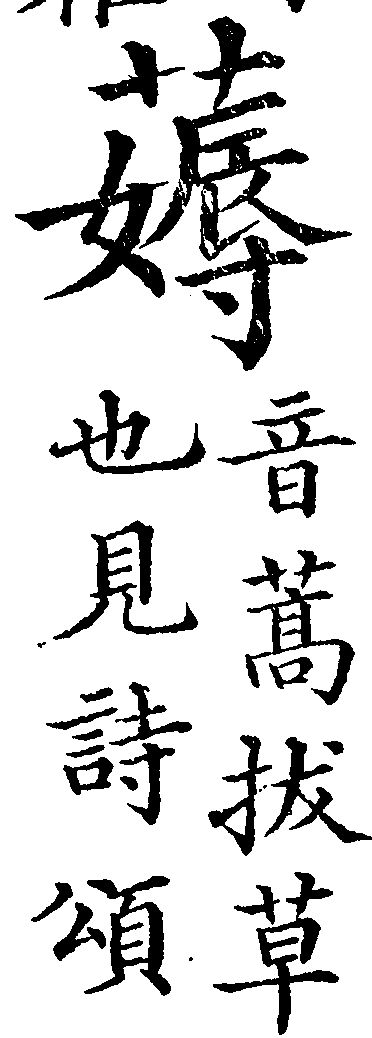 薅
音蒿拔草
也見詩頌